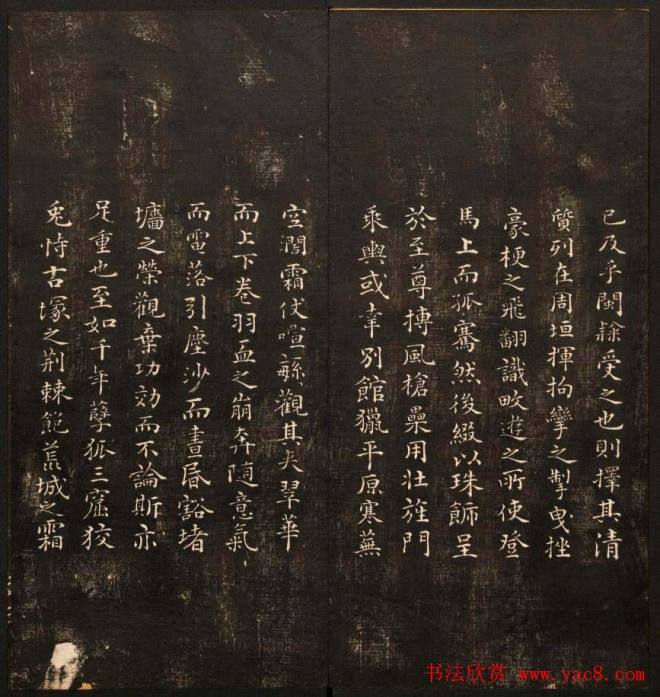 已及乎閽隸受之也則擇其清
質列在周垣揮拘攣之掣曳挫
豪梗之飛翻識畋遊之所使登
馬上而孤騫然後綴以珠飾呈
於至尊搏風槍纍用壯旌門
乘輿或幸別館獵平原寒蕪
空濶霜仗喧繁觀其夾翠華
而上下卷羽血之崩奔隨意氣
而電落引塵沙而晝昏豁堵
墻之榮觀棄功効而不論斯亦
足重也至如千年孽狐三窟狡
兎恃古塚之荆棘飽荒城之霜
书法欣赏 www.yac8.com